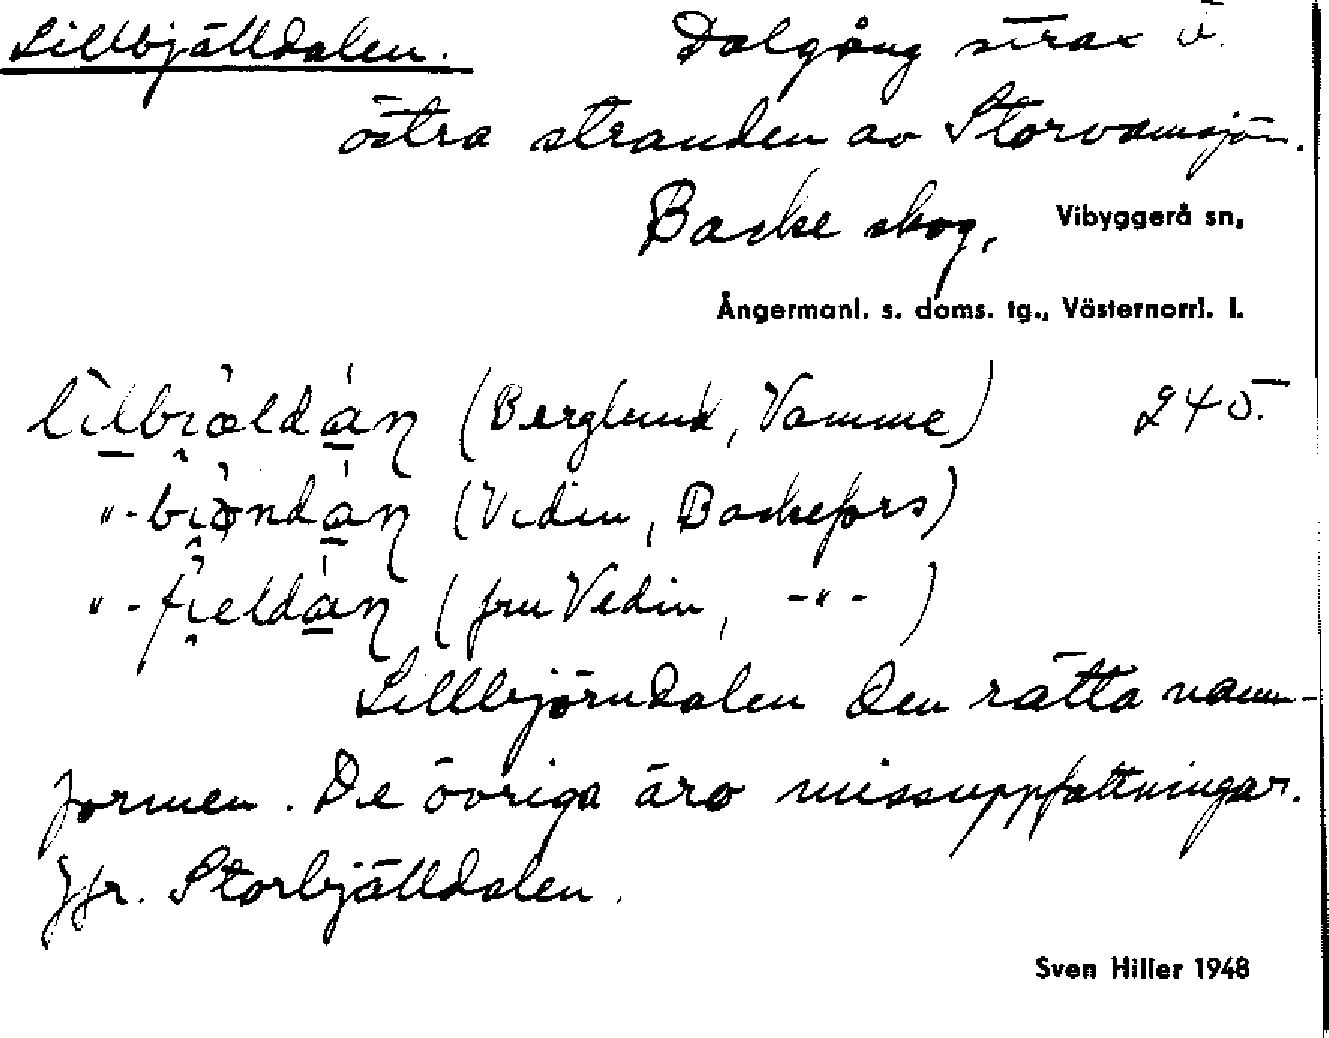 Lillbjälldalen. Dalgång strax ö.
östra stranden av Storvamsjön.
Backe skog, Vibyggerå sn,
Ångermanl. s. doms. tg., Västernorrl. l.
(Berglund, Vamme) 240.
(Vedin, Backefors)
(fru Vedin, -"-)
Lillbjörndalen den rätta namn-
formen. De övriga äro missuppfattningar.
Jfr. Storbjälldalen.
Sven Hiller 1948